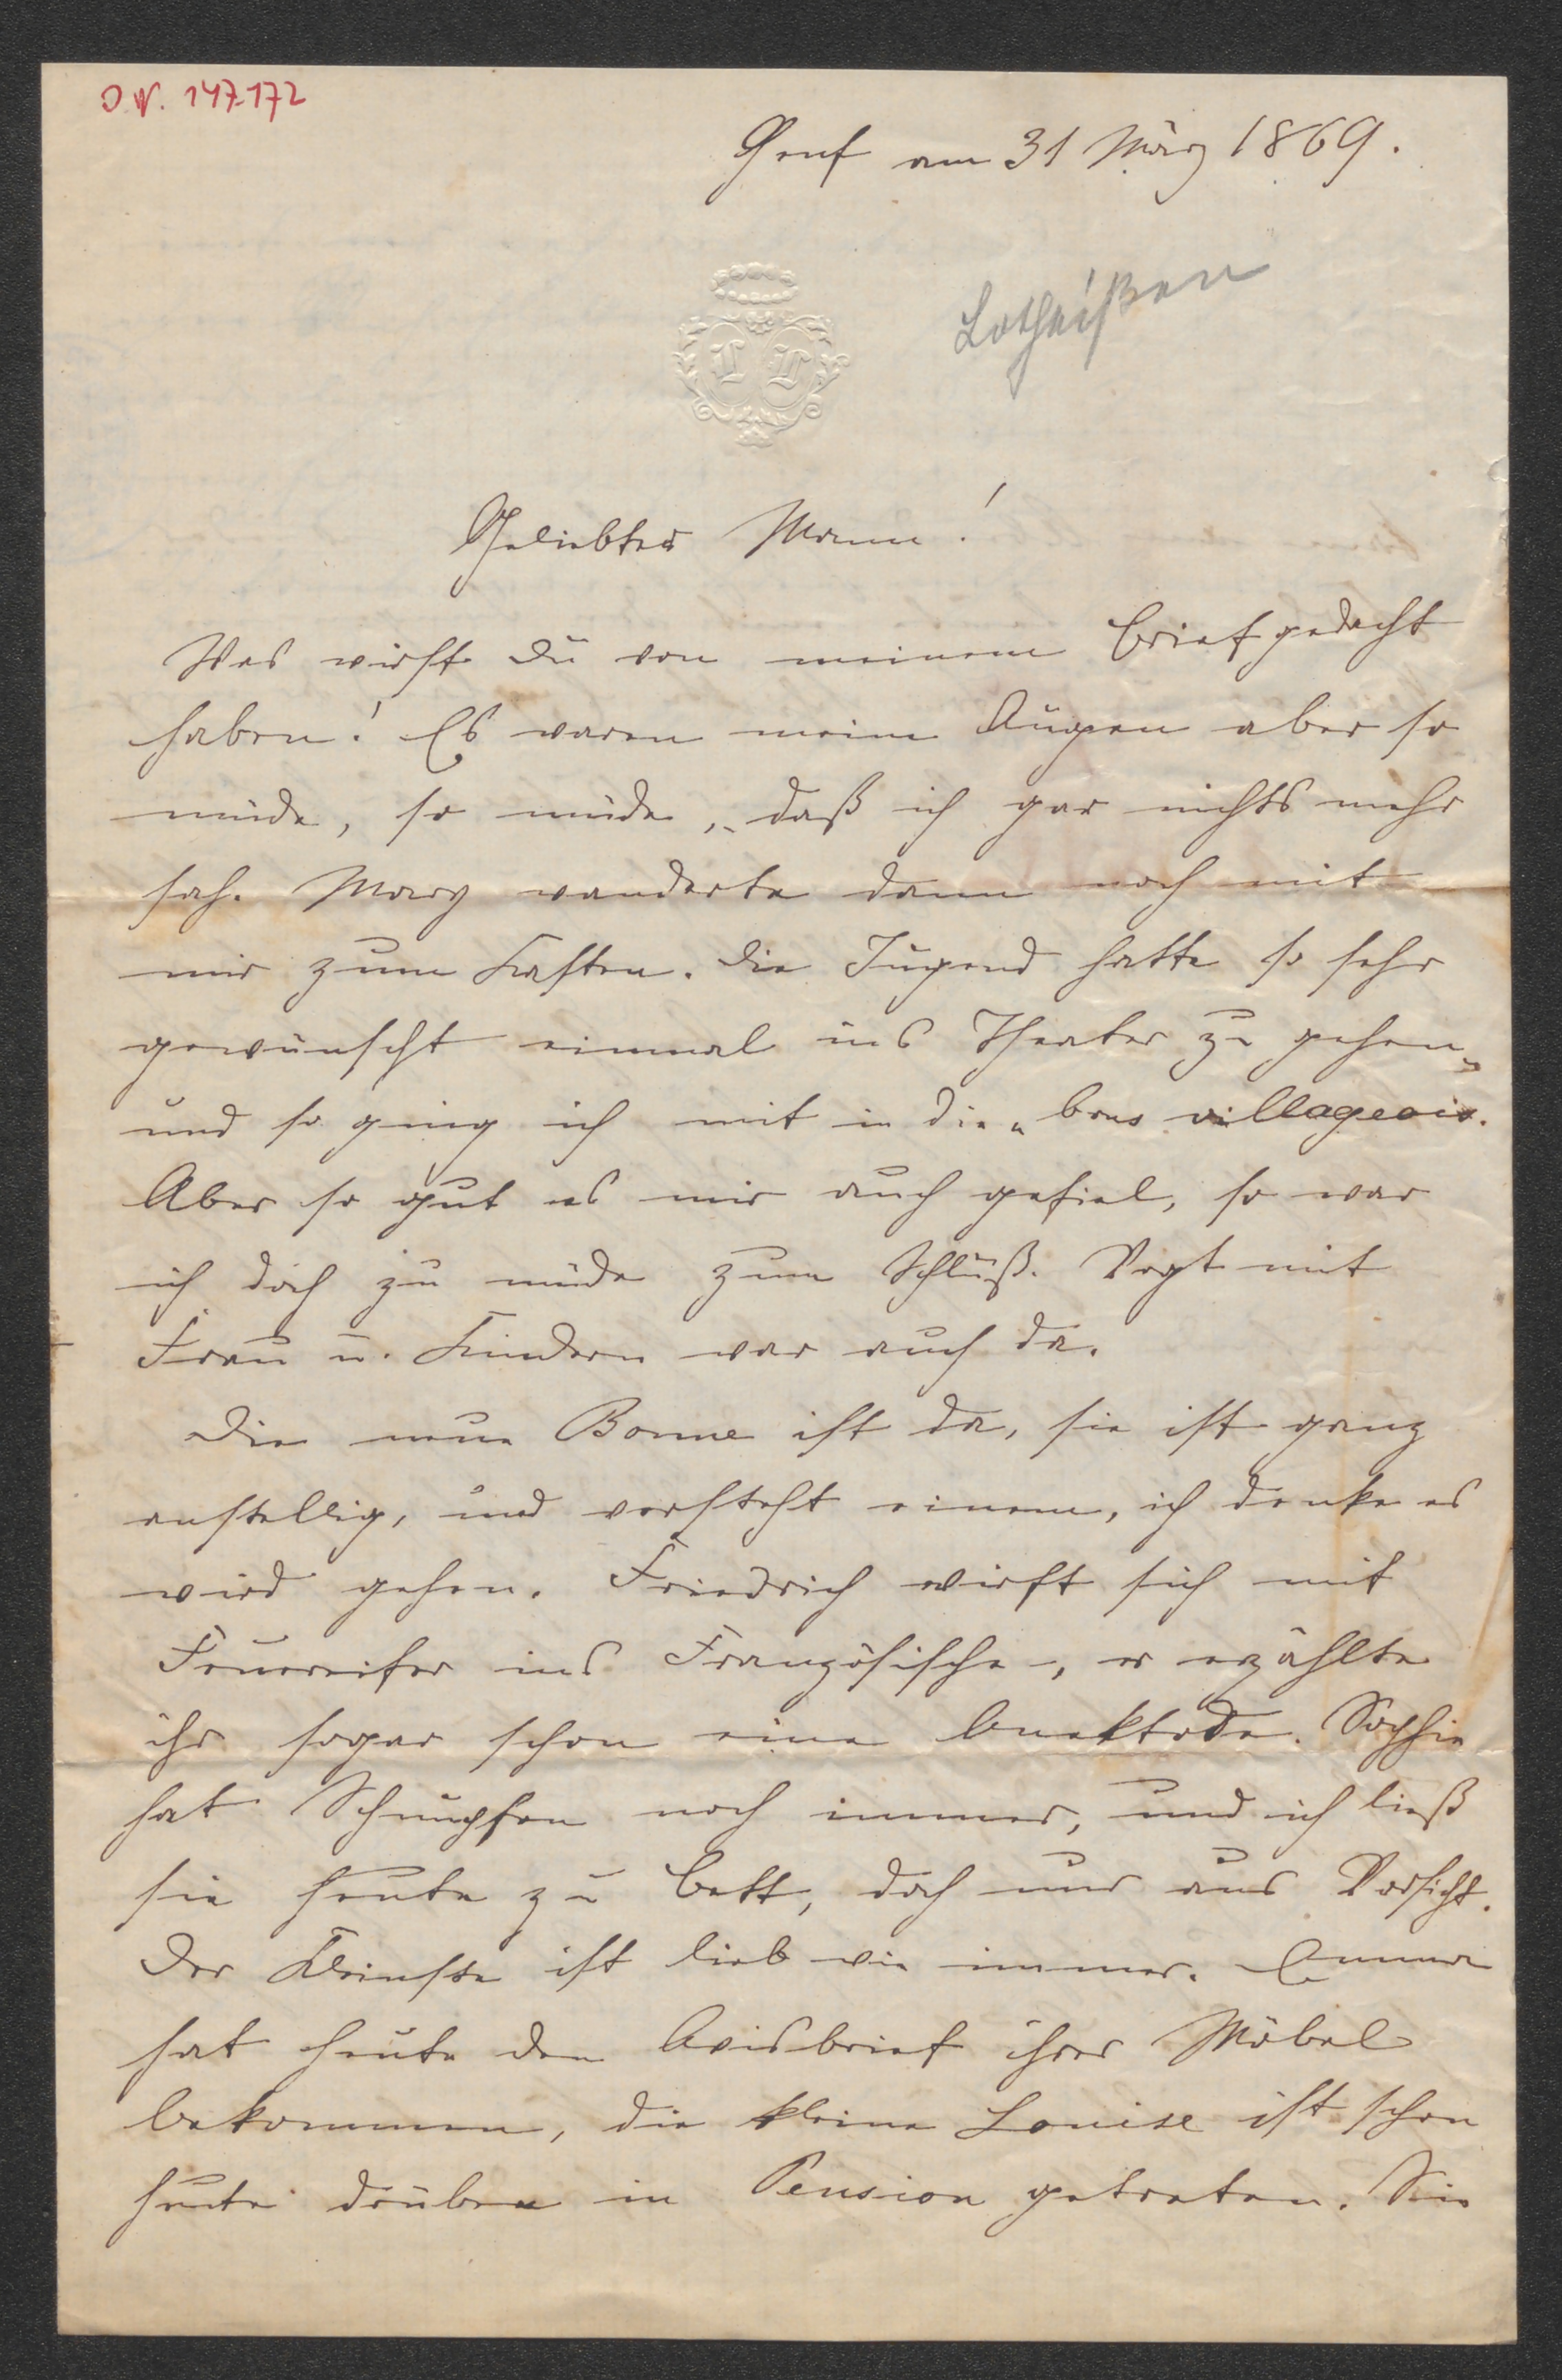 O.N. 147.172
Genf am 31 März 1869.
Lotheißen
L L
Geliebter Mann!
Was wirst Du von meinem Brief gedacht
haben! Es waren meine Augen aber so
müde, so müde, daß ich gar nichts mehr
sah. Mary wanderte dann noch mit
mir zum Kasten. Die Jugend hatte so sehr
gewünscht einmal ins Theater zu gehen,
und so ging ich mit in die „bons villageois.
Aber so gut es mir auch gefiel, so war
ich doch zu müde zum Schluß. Vogt mit
Frau u. Kindern war auch da.
Die neue Bonne ist da, sie ist ganz
anstellig, und versteht einem, ich denke es
wird gehen. Friedrich wirft sich mit
Feuereifer ins Französische, er erzählte
ihr sogar schon eine Anektode. Sophie
hat Schnupfen noch immer, und ich ließ
sie heute zu Bett, doch nur aus Vorsicht.
Der Kleinste ist lieb wie immer. Emma
hat heute den Avisbrief ihrer Möbel
bekommen, die kleine Louise ist schon
heute drüben in Pension getreten. Sie